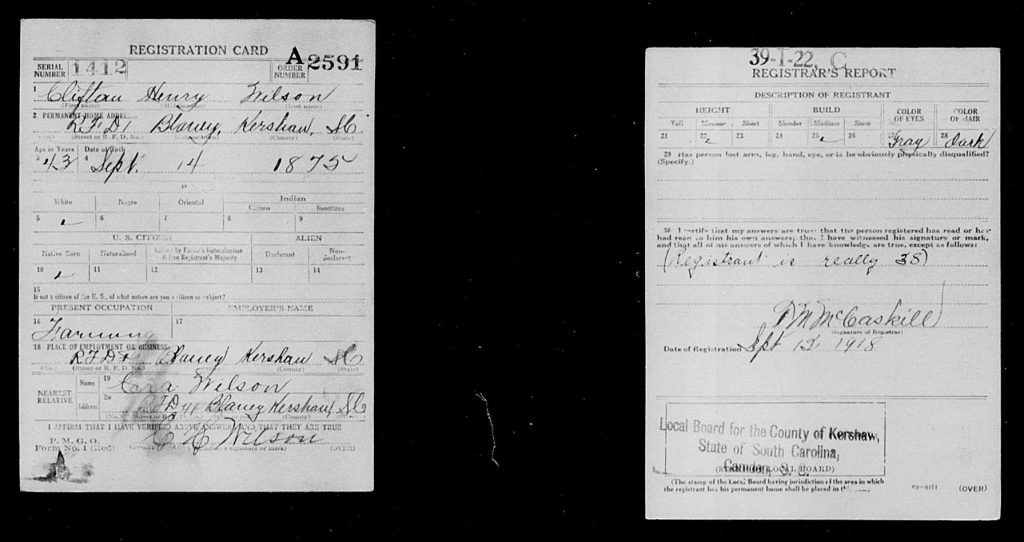 REGISTRATION CARD
SERIAL NUMBER 1412 ORDER NUMBER A2591
1 Cliftan Henry Wilson
(First name) (Middle name) (Last name)
2 PERMANENT HOME ADDRESS:
R.F.D.1 Blaney, Kershaw, S.C.
(No.) (Street or R. F. D. No.) (County) (State)
Age in Years Date of Birth
3 43 4 Sept. 14 1875
White Negro Oriental Indian
Citizen Noncitizen
5 ✓ 6 7 8 9
U. S. CITIZEN ALIEN
Native Born Naturalized Citizen by Father's Naturalization Before Registrant's Majority Declarant Non-declarant
10 ✓ 11 12 13 14
15
If not a citizen of the U. S., of what nation are you a citizen or subject?
PRESENT OCCUPATION EMPLOYER'S NAME
16 Farming 17
18 PLACE OF EMPLOYMENT OR BUSINESS:
R.F.D.1 Blaney Kershaw S.C.
(No.) (Street or R. F. D. No.) (County) (State)
NEAREST RELATIVE Name 19 Cora Wilson
Address 20 Blaney Kershaw S.C.
I AFFIRM THAT I HAVE VERIFIED ABOVE ANSWERS AND THAT THEY ARE TRUE
P. M. G. O.
Form No. 1 (Red) C H Wilson
(Registrant's signature or mark) (OVER)
39-1-22. C
REGISTRAR'S REPORT
DESCRIPTION OF REGISTRANT
HEIGHT BUILD COLOR OF EYES COLOR OF HAIR
Tall Medium Short Slender Medium Stout
21 22 ✓ 23 24 25 ✓ 26 27 Gray 28 Dark
29 Has person lost arm, leg, hand, eye, or is he obviously physically disqualified?
(Specify.)
30 I certify that my answers are true; that the person registered has read or has
had read to him his own answers; that I have witnessed his signature or mark,
and that all of his answers of which I have knowledge are true, except as follows:
(Registrant is really 38)
M McCaskill
(Signature of Registrar)
Date of Registration Sept 12, 1918
Local Board for the County of Kershaw,
State of South Carolina,
Camden, S. C.
(STAMP OF LOCAL BOARD)
(The stamp of the Local Board having jurisdiction of the area in which
the registrant has his permanent home shall be placed in this box.)
03-6171 (OVER)